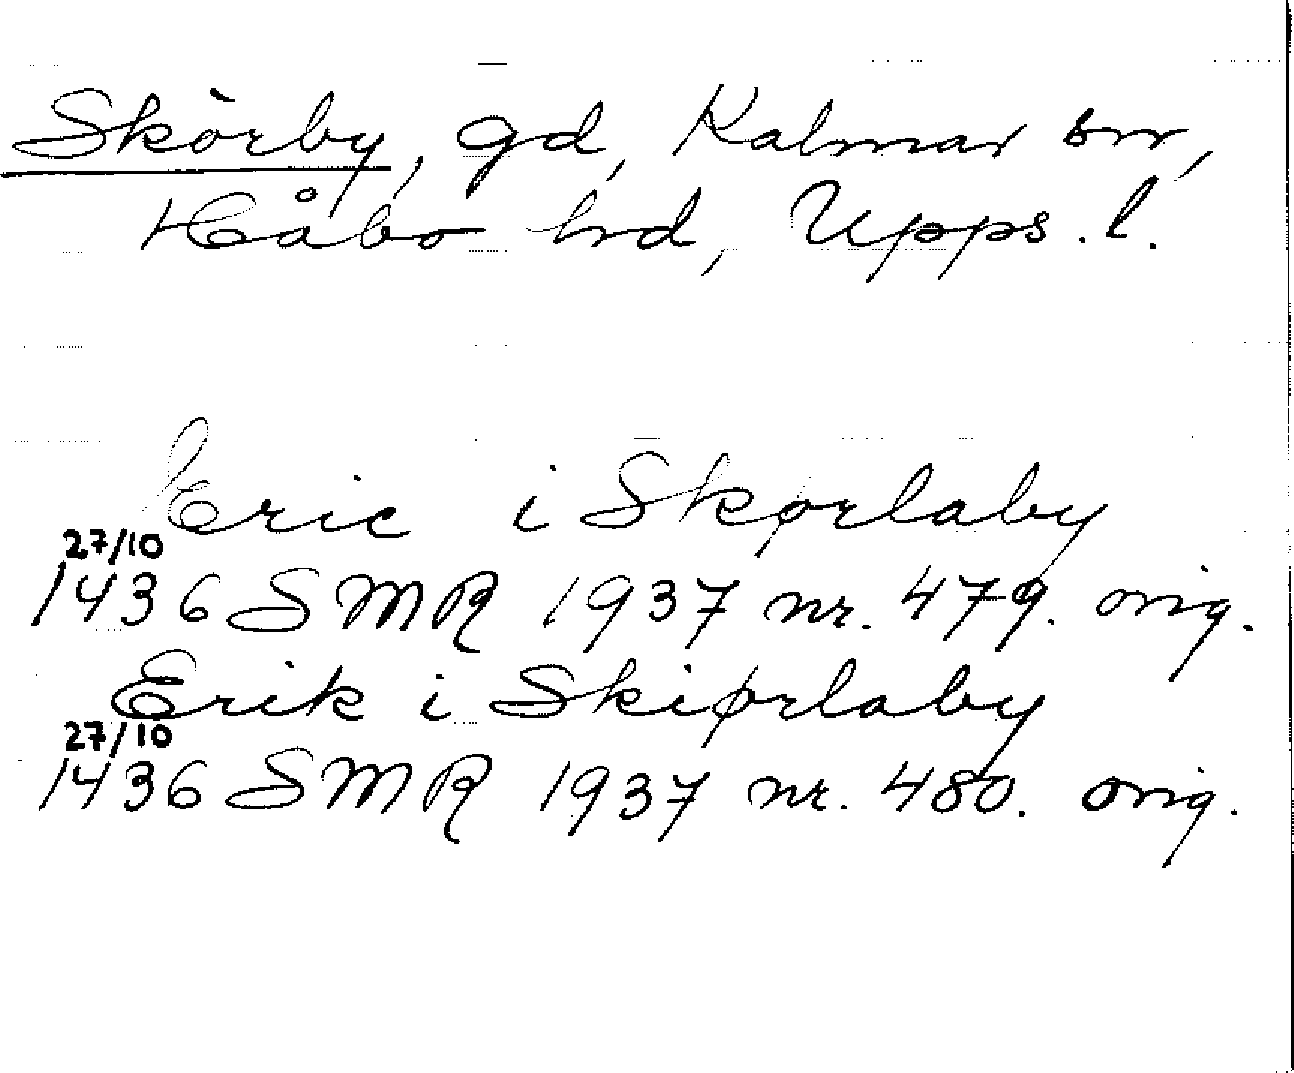 Skörby, gd, Kalmar sn,
Håbo hd, Upps. l.
Eric i Skørlaby
27/10
1436 SMR 1937 nr. 479. orig.
Erik i Skiørlaby
27/10
1436 SMR 1937 nr. 480. orig.